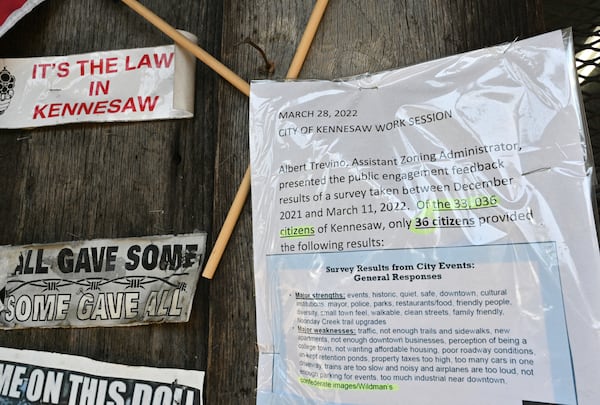 IT'S THE LAW
IN
KENNESAW
ALL GAVE SOME
SOME GAVE ALL
ME ON THIS DOLL
MARCH 28, 2022
CITY OF KENNESAW WORK SESSION
Albert Trevino, Assistant Zoning Administrator,
presented the public engagement feedback
results of a survey taken between December
2021 and March 11, 2022. Of the 33, 036
citizens of Kennesaw, only 36 citizens provided
the following results:
Survey Results from City Events:
General Responses
• Major strengths: events, historic, quiet, safe, downtown, cultural
institutions, mayor, police, parks, restaurants/food, friendly people,
diversity, small town feel, walkable, clean streets, family friendly,
Noonday Creek trail upgrades
• Major weaknesses: traffic, not enough trails and sidewalks, new
apartments, not enough downtown businesses, perception of being a
college town, not wanting affordable housing, poor roadway conditions,
un-kept retention ponds, property taxes too high, too many cars in one
driveway, trains are too slow and noisy and airplanes are too loud, not
enough parking for events, too much industrial near downtown,
confederate images/Wildman's